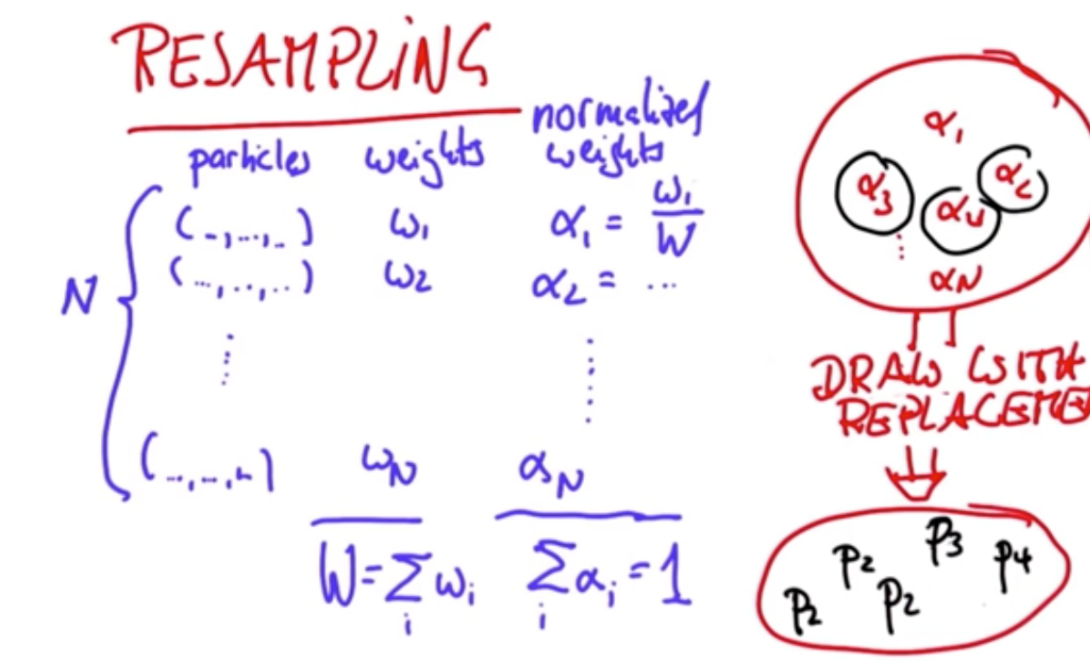 RESAMPLING
particles weights normalized weights
N
(...,...,...) ω₁ α₁ = ω₁/W
(...,...,...) ω₂ α₂ = ...
(...,...,...) ω_N α_N
W = Σ_i ω_i Σ_i α_i = 1
α₁
α₃ α₄ α₂
α_N
DRAW WITH
REPLACEME
p₃
p₂ p₄
p₂ p₂